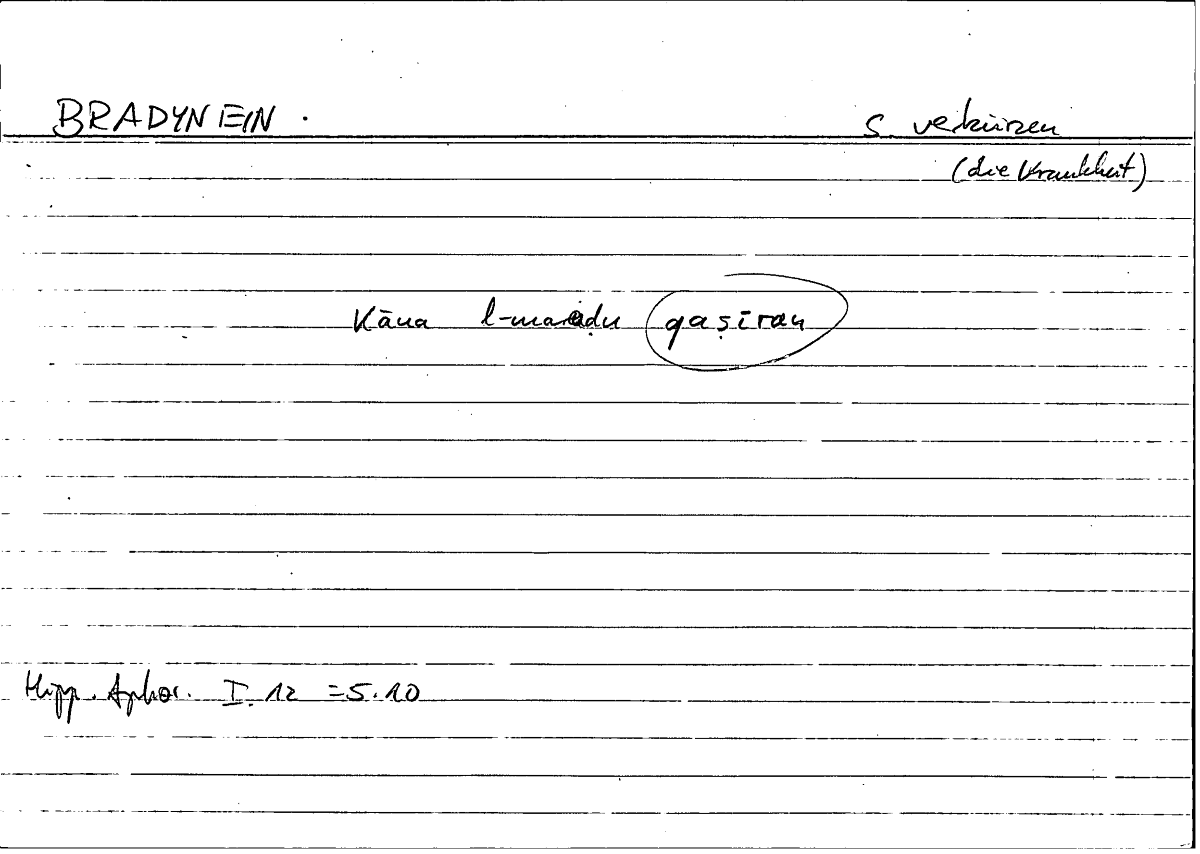 BRADYNEIN . s. verkürzen
(die Krankheit)
Kāna l-maraḍu qaṣīran
Hipp. Aphor. I. 12 = 5.10